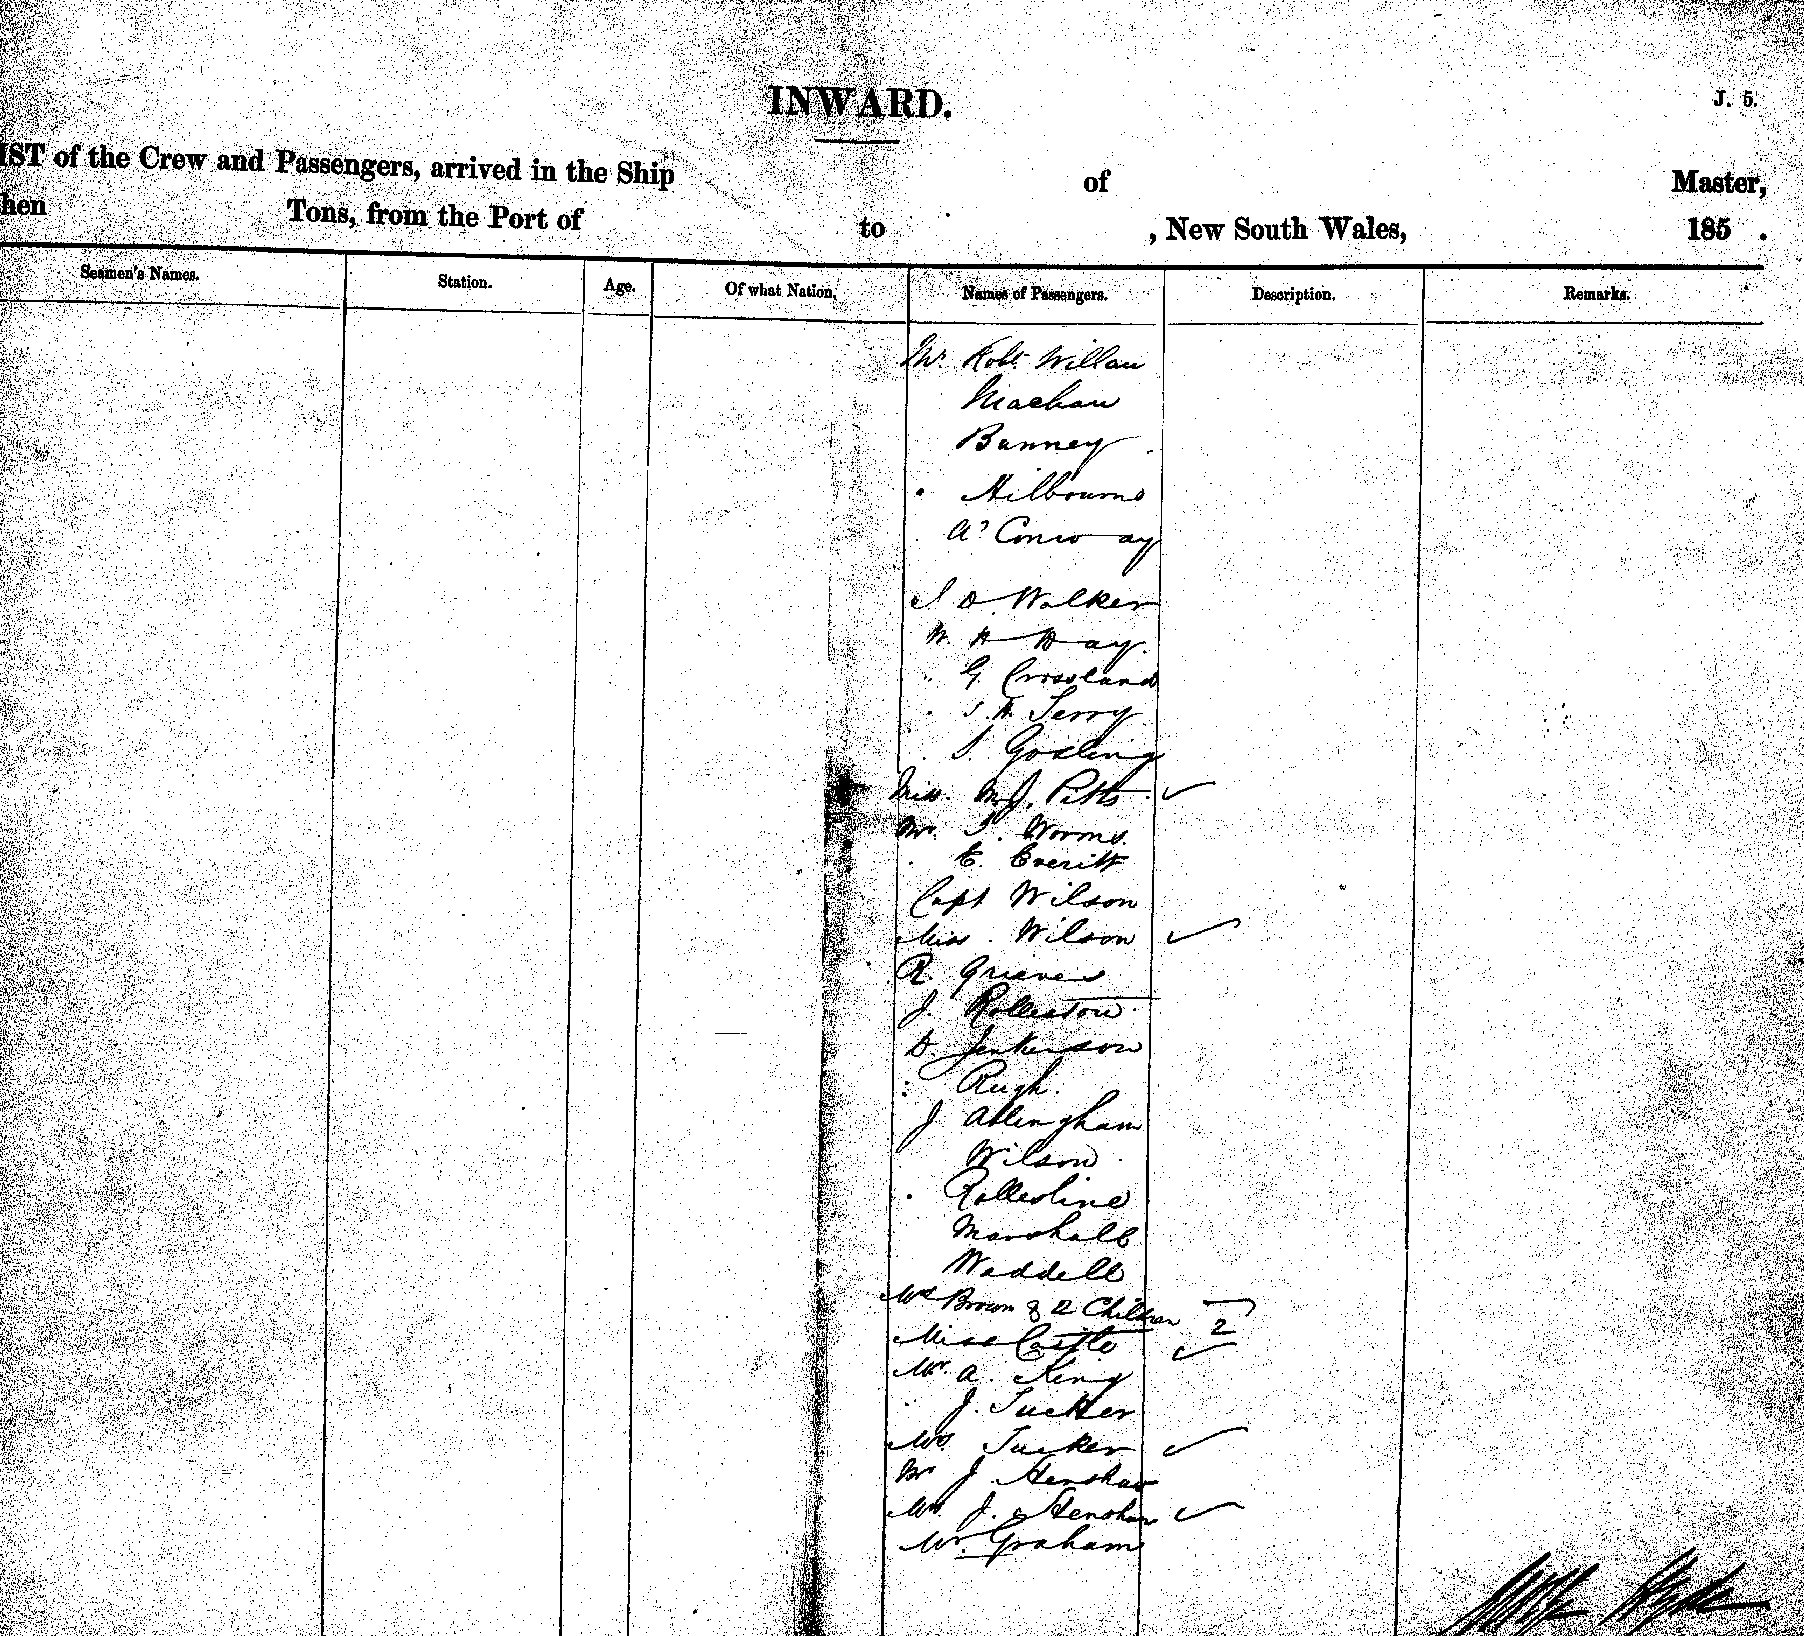 INWARD.
J. 5.
IST of the Crew and Passengers, arrived in the Ship of Master,
hen Tons, from the Port of to , New South Wales, 185 .
Seamen's Names. Station. Age. Of what Nation. Names of Passengers. Description. Remarks.
Mr. Robt. Willan
Machan
Banney
Hilbourne
Conway
Walker
W. H. Hay.
G. Crossland
J. H. Terry
J. Gosling
Miss. M. J. Pitts
Mr. Worms.
E. Everitt
Capt Wilson
Miss. Wilson
R. Grieves
J. Rolleston
D. Jenkinson
Rugh.
J Allingham
Wilson
Rollestine
Marshall
Waddell
Mrs Brown & 2 Children 2
Miss Castle
Mr. A. King
J. Tucker
Mrs. Tucker
Mr J. Henshaw
Mrs. J. Henshaw
Mr. Graham